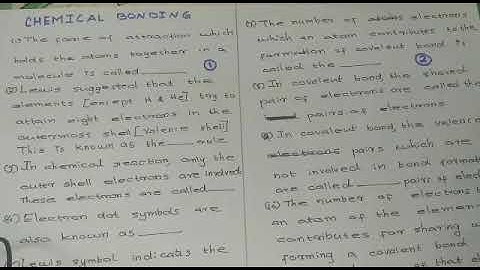 CHEMICAL BONDING
(1) The force of attraction which
holds the atoms together in a
molecule is called
(2) Lewis suggested that the
elements [except H & He] try to
attain eight electrons in the
outermost shell [Valence shell]
This is known as the rule
(3) In chemical reaction, only the
outer shell electrons are involved
These electrons are called
(4) Electron dot symbols are
also known as
Lewis symbol indicates the
The number of electrons
which an atom contributes to the
formation of covalent bond is
called the
①
②
In covalent bond, the shared
pair of electrons are called the
pairs of electrons
In covalent bond, the valence
pairs which are
not involved in bond
are called pairs of
The number of electrons
an atom of the
contributes for sharing
forming a covalent bond
of that